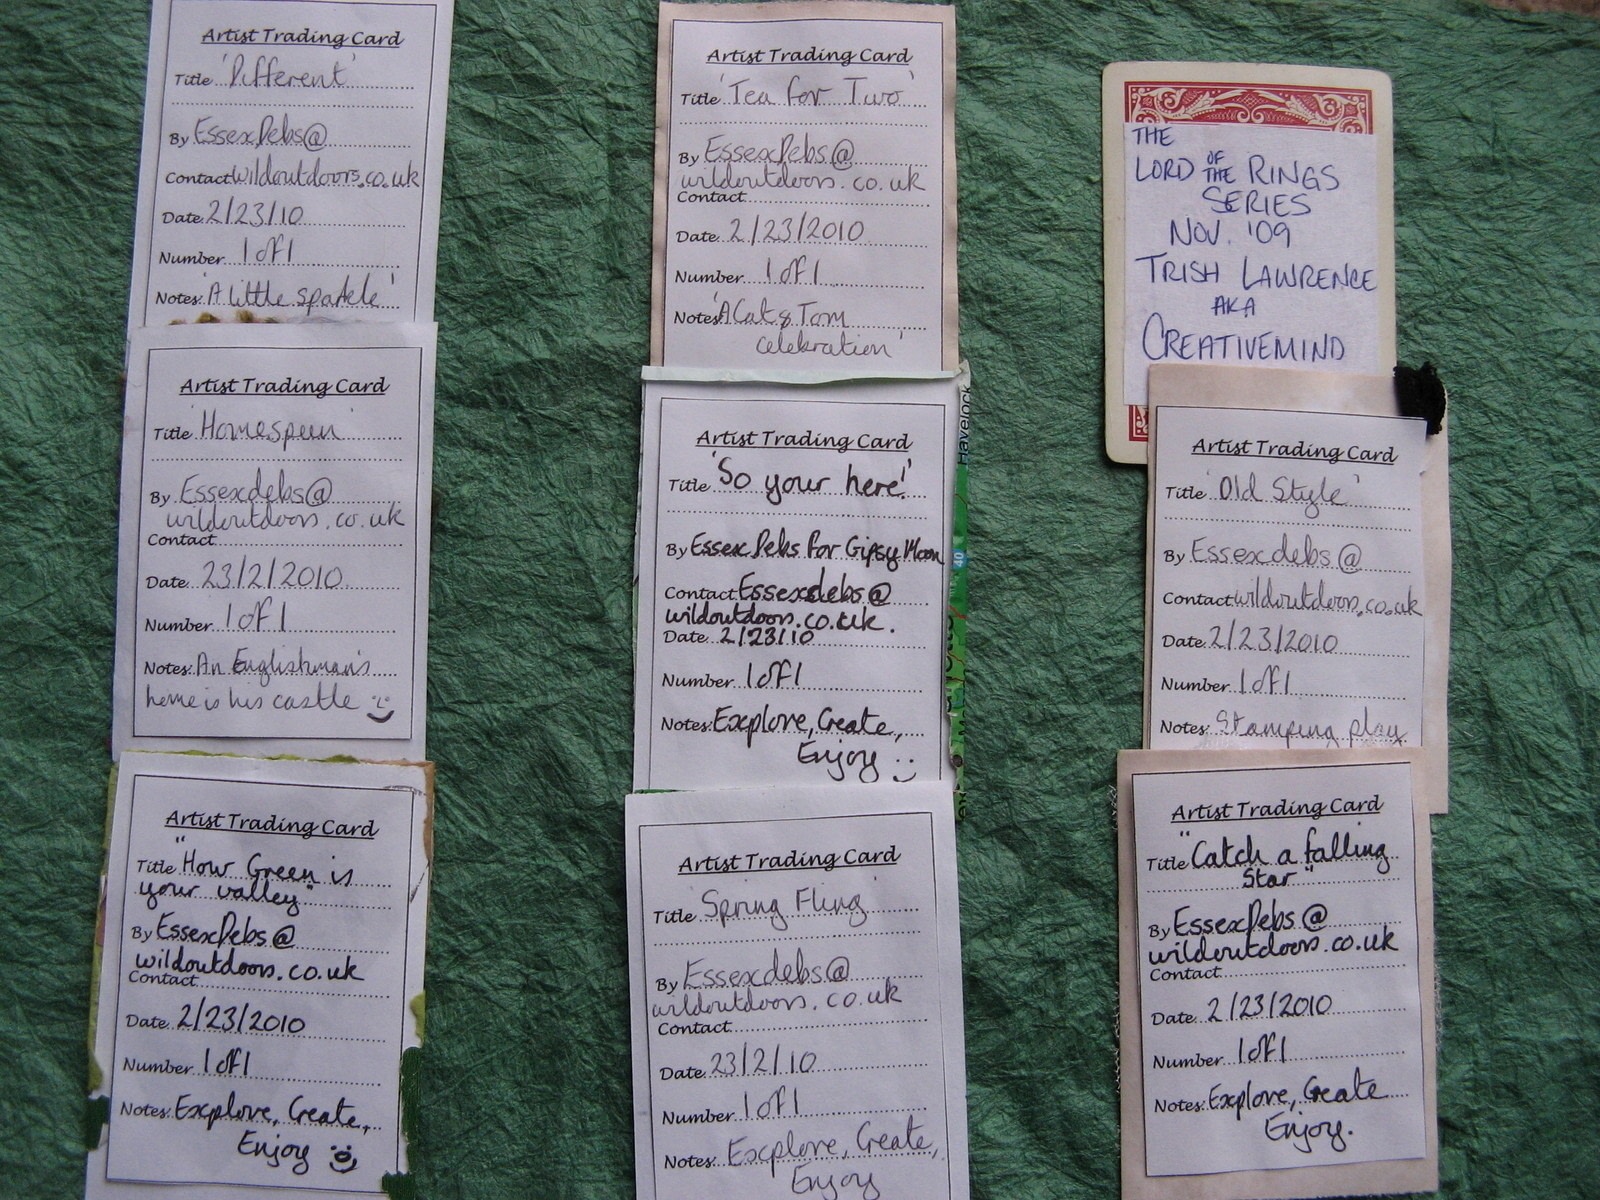 Artist Trading Card
Title 'Different'
By EssexDebs@
Contact wildoutdoors.co.uk
Date 2/23/10
Number 1 of 1
Notes: 'A little sparkle'
Artist Trading Card
Title 'Homespun'
By Essexdebs@
wildoutdoors.co.uk
Contact
Date 23/2/2010
Number 1 of 1
Notes: An Englishman's
home is his castle
Artist Trading Card
Title "How Green is
your valley"
By EssexDebs@
wildoutdoors.co.uk
Contact
Date 2/23/2010
Number 1 of 1
Notes: Explore, Create,
Enjoy
Artist Trading Card
Title 'Tea for Two'
By EssexDebs@
wildoutdoors.co.uk
Contact
Date 2/23/2010
Number 1 of 1
Notes 'A Cat & Tom
celebration'
Artist Trading Card
Title 'So your here!'
By Essex Debs for Gipsy Moon
Contact Essexdebs@
wildoutdoors.co.uk.
Date 2/23/10
Number 1 of 1
Notes: Explore, Create,
Enjoy
Havelock
40
Artist Trading Card
Title 'Spring Fling'
By Essexdebs@
wildoutdoors.co.uk
Contact
Date 23/2/10
Number 1 of 1
Notes: Explore, Create,
Enjoy
THE
LORD OF THE RINGS
SERIES
NOV. '09
TRISH LAWRENCE
AKA
CREATIVEMIND
Artist Trading Card
Title 'Old Style'
By Essexdebs@
Contact wildoutdoors.co.uk
Date 2/23/2010
Number 1 of 1
Notes: Stamping play
Artist Trading Card
Title "Catch a falling
Star"
By EssexDebs@
wildoutdoors.co.uk
Contact
Date 2/23/2010
Number 1 of 1
Notes: Explore, Create
Enjoy.